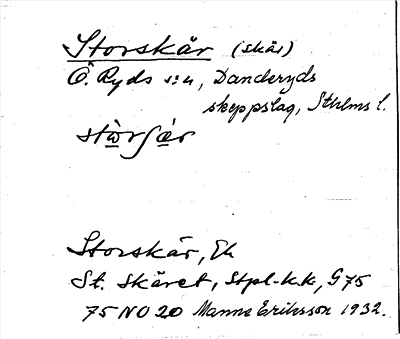 Storskär (skär)
Ö. Ryds sn, Danderyds
skeppslag, Sthlms l.
Storskär, Ek
St. Skäret, Stpl-k.k, G75
75 NO 20 Manne Eriksson 1932.